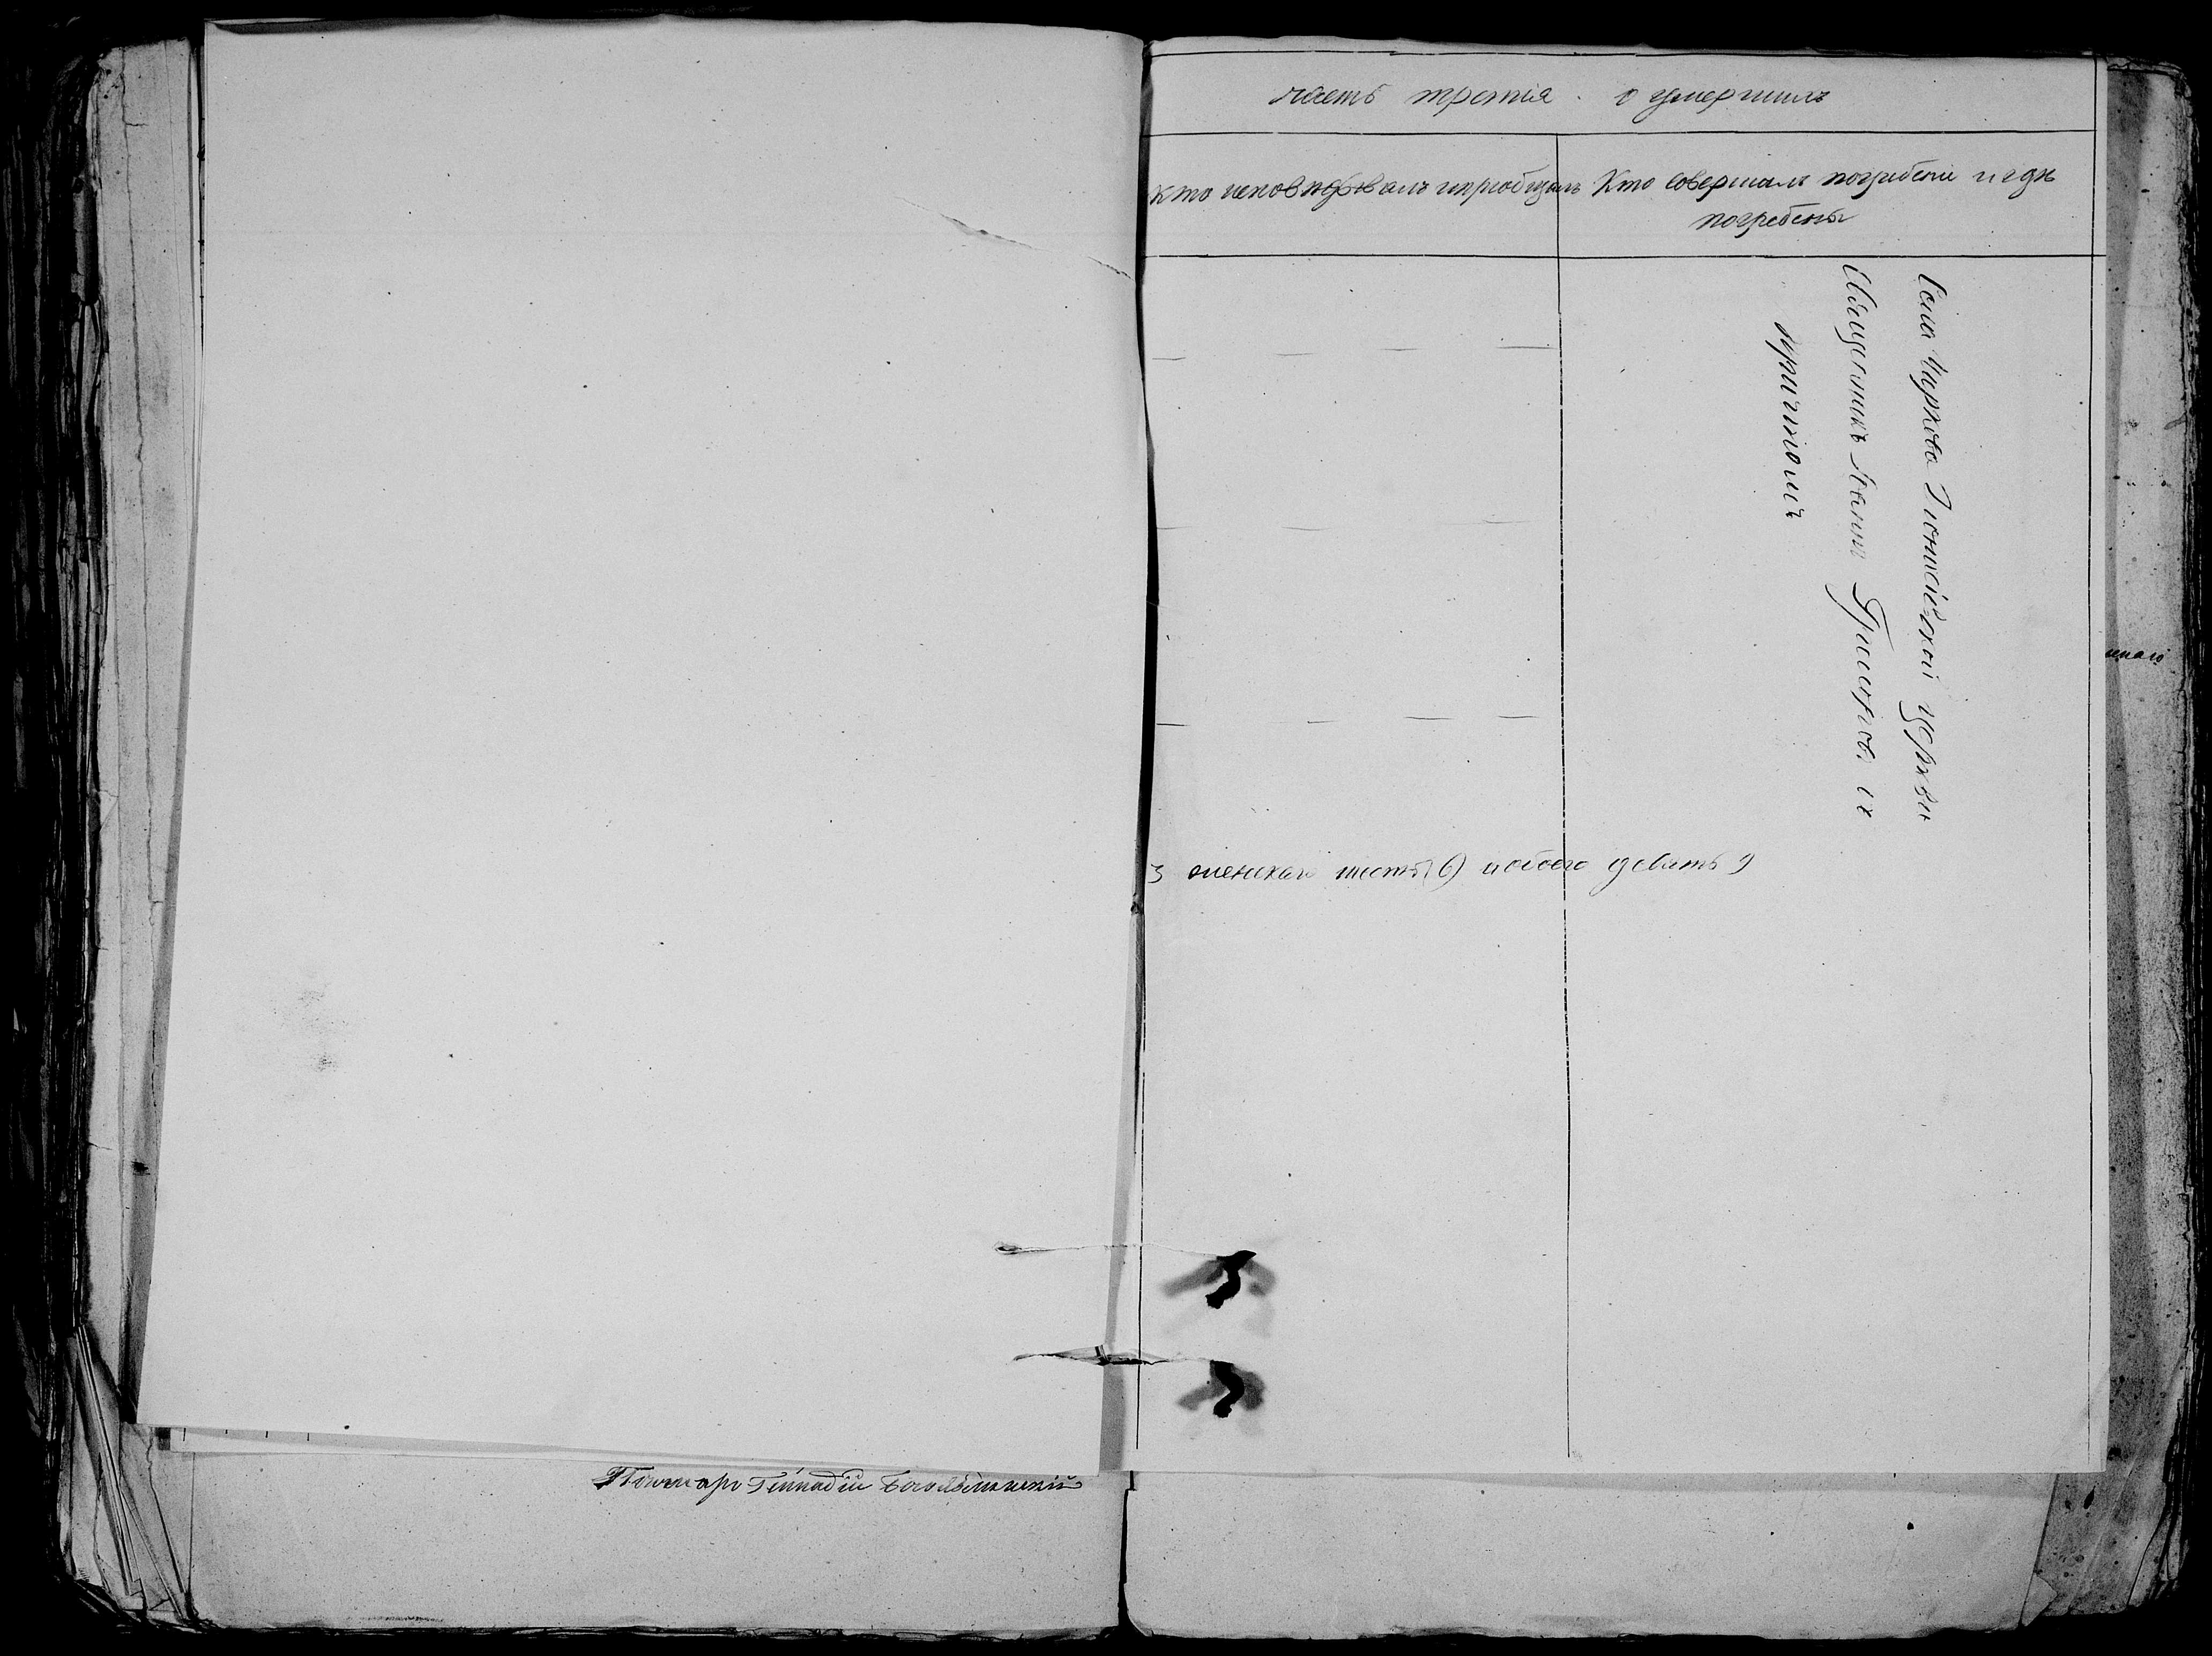 часть третія. о умершихъ
Кто исповѣдывалъ и пріобщалъ
Кто совершалъ погребеніе и гдѣ
погребены
Села Чиркова Дѵонисіевской церкви
Священникъ Іоаннъ съ
причтомъ
3 женскаго шесть (6) и обоего девять 9
Пономарь Геннадій